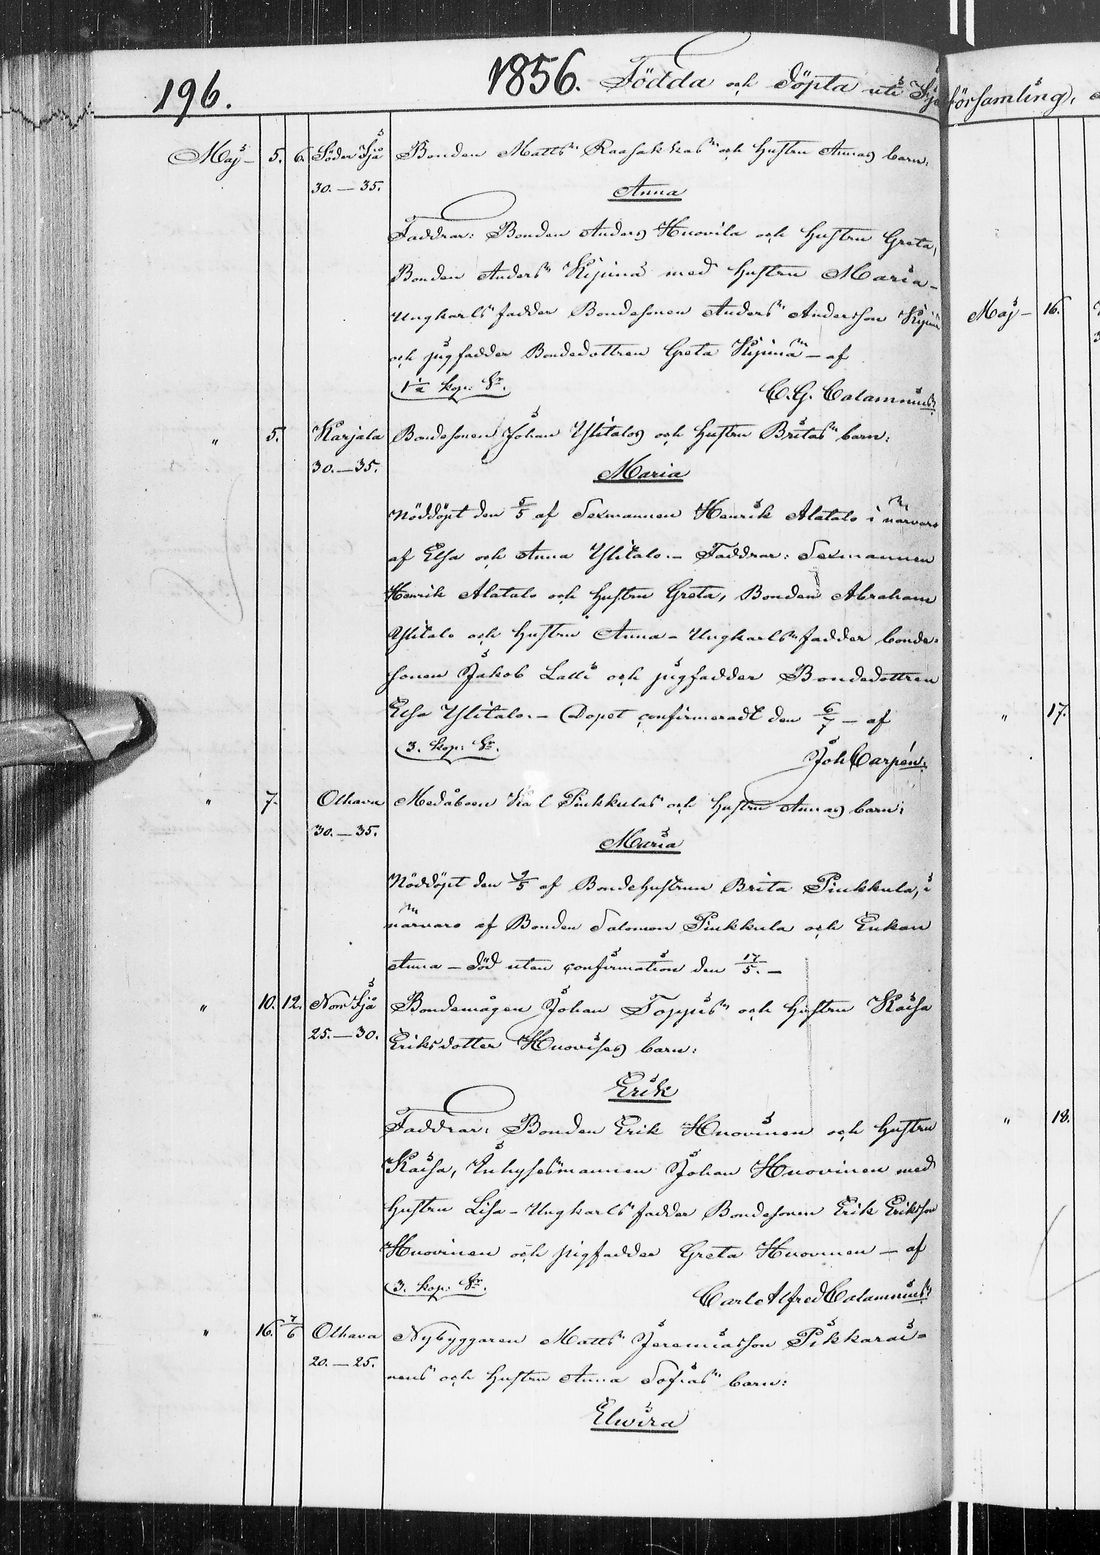 196. 1856. Födda och Döpta uti Ijo församling,
Maj 5. 6. Söder Ijo Bonden Matts Raasakkas och hustru Annas barn:
30.—35. Anna
Faddrar: Bonden Anders Huovila och hustru Greta,
Bonden Anders Kipinä med hustru Maria—
Ungkarls fadder Bondesonen Anders Andersson Kipinä
och pigfadder Bondedottren Greta Kipinä — af
1½ kop: Sr. C. G. Calamnius.
" 5. Karjala Bondesonen Johan Ylitalos och hustru Britas barn:
30.—35. Maria
Nöddöpt den 5/5 af Sexmannen Henrik Alatalo i närvaro
af Elsa och Anna Ylitalo.— Faddrar: Sexmannen
Henrik Alatalo och hustru Greta, Bonden Abraham
Ylitalo och hustru Anna— Ungkarls fadder bonde-
sonen Jakob Lalli och pigfadder Bondedottren
Elsa Ylitalo.— Dopet confirmeradt den 6/7 — af
3. kop: Sr. Joh Carpén.
" 7. Olhava Medåboen Piukkulas och hustru Annas barn:
30.—35. Maria
Nöddöpt den 9/5 af Bondehustrun Brita Piukkula, i
närvaro af Bonden Salomon Piukkula och Enkan
Anna — död utan confirmation den 17/5.—
" 10. 12. Norr Ijo Bondemågen Johan Toppis och hustru Kaisa
25.—30. Eriksdotter Huovises barn:
Erik
Faddrar: Bonden Erik Huovinen och hustru
Kaisa, Inhysesmannen Johan Huovinen med
hustru Lisa— Ungkarls fadder Bondesonen Erik Eriksson
Huovinen och pigfadder Greta Huovinen — af
3. kop: Sr. Carl Alfred Calamnius.
" 16. 7/6 Olhava Nybyggaren Matts Jeremiasson Pikkarai-
20.—25. nens och hustru Anna Sofias barn:
Elwira
Maj— 16.
" 17.
" 18.